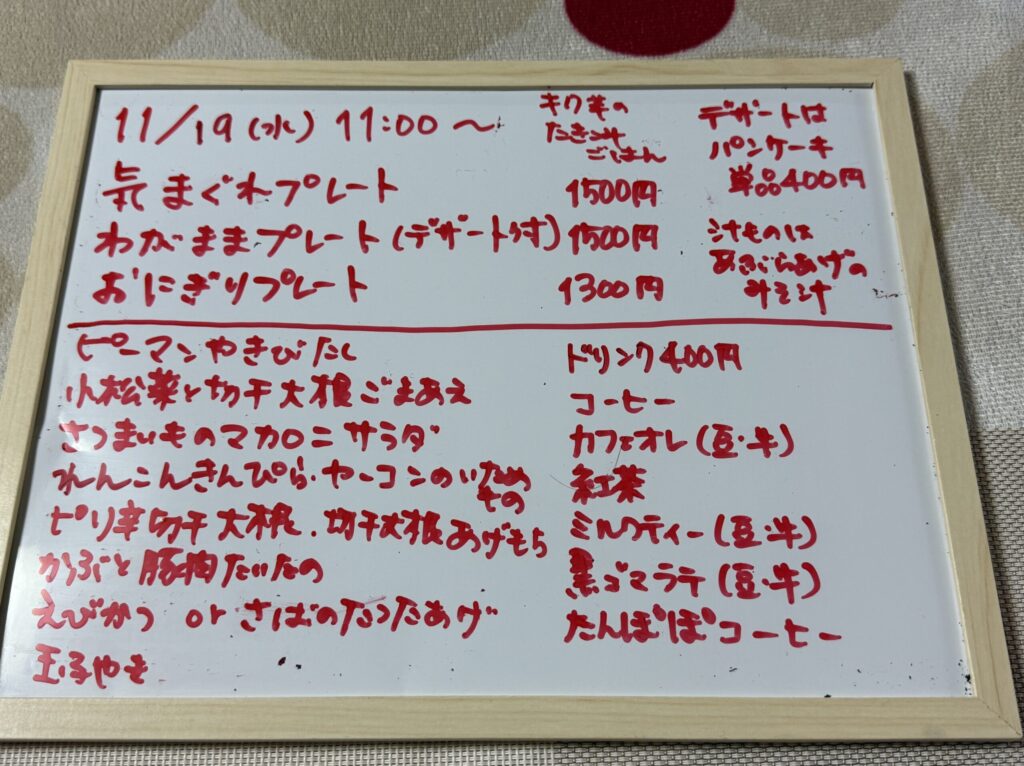 11/19(水) 11:00〜
キク芋の
たき込み
ごはん
デザートは
パンケーキ
単品400円
気まぐれプレート 1500円
わがままプレート(デザート付) 1500円
おにぎりプレート 1300円
汁ものは
あぶらあげの
みそ汁
ピーマンやきびたし
小松菜と切干大根ごまあえ
さつまいものマカロニサラダ
れんこんきんぴら・ヤーコンのいためもの
ピリ辛切干大根・切干大根あげもち
かぶと豚肉たいたの
えびかつ or さばのたつたあげ
玉子やき
ドリンク400円
コーヒー
カフェオレ(豆・牛)
紅茶
ミルクティー(豆・牛)
黒ゴマラテ(豆・牛)
たんぽぽコーヒー